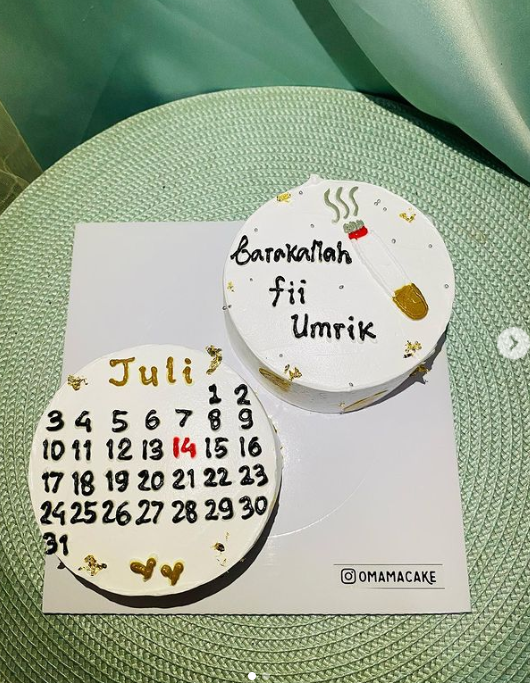 Barakallah
fii
Umrik
Juli
1 2
3 4 5 6 7 8 9
10 11 12 13 14 15 16
17 18 19 20 21 22 23
24 25 26 27 28 29 30
31
OMAMACAKE